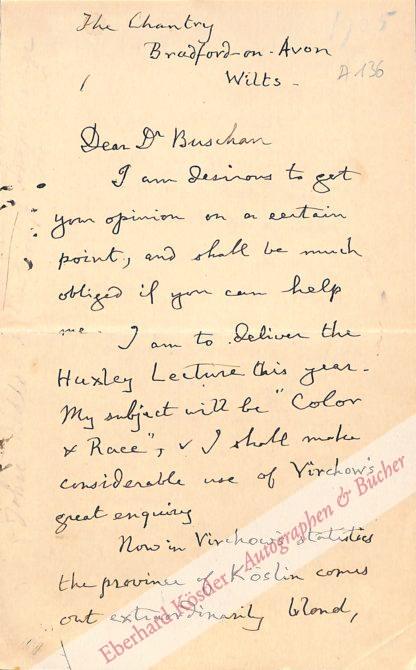 The Chantry
Bradford-on-Avon
Wilts -
A 136
Dear Dr Buschan
I am desirous to get
your opinion on a certain
point, and shall be much
obliged if you can help
me. I am to deliver the
Huxley Lecture this year.
My subject will be "Color
& Race", & I shall make
considerable use of Virchow's
great enquiry
Now in Virchow's statistics
the province of Köslin comes
out extraordinarily blond,
Eberhard Köstler - Autographen & Bücher